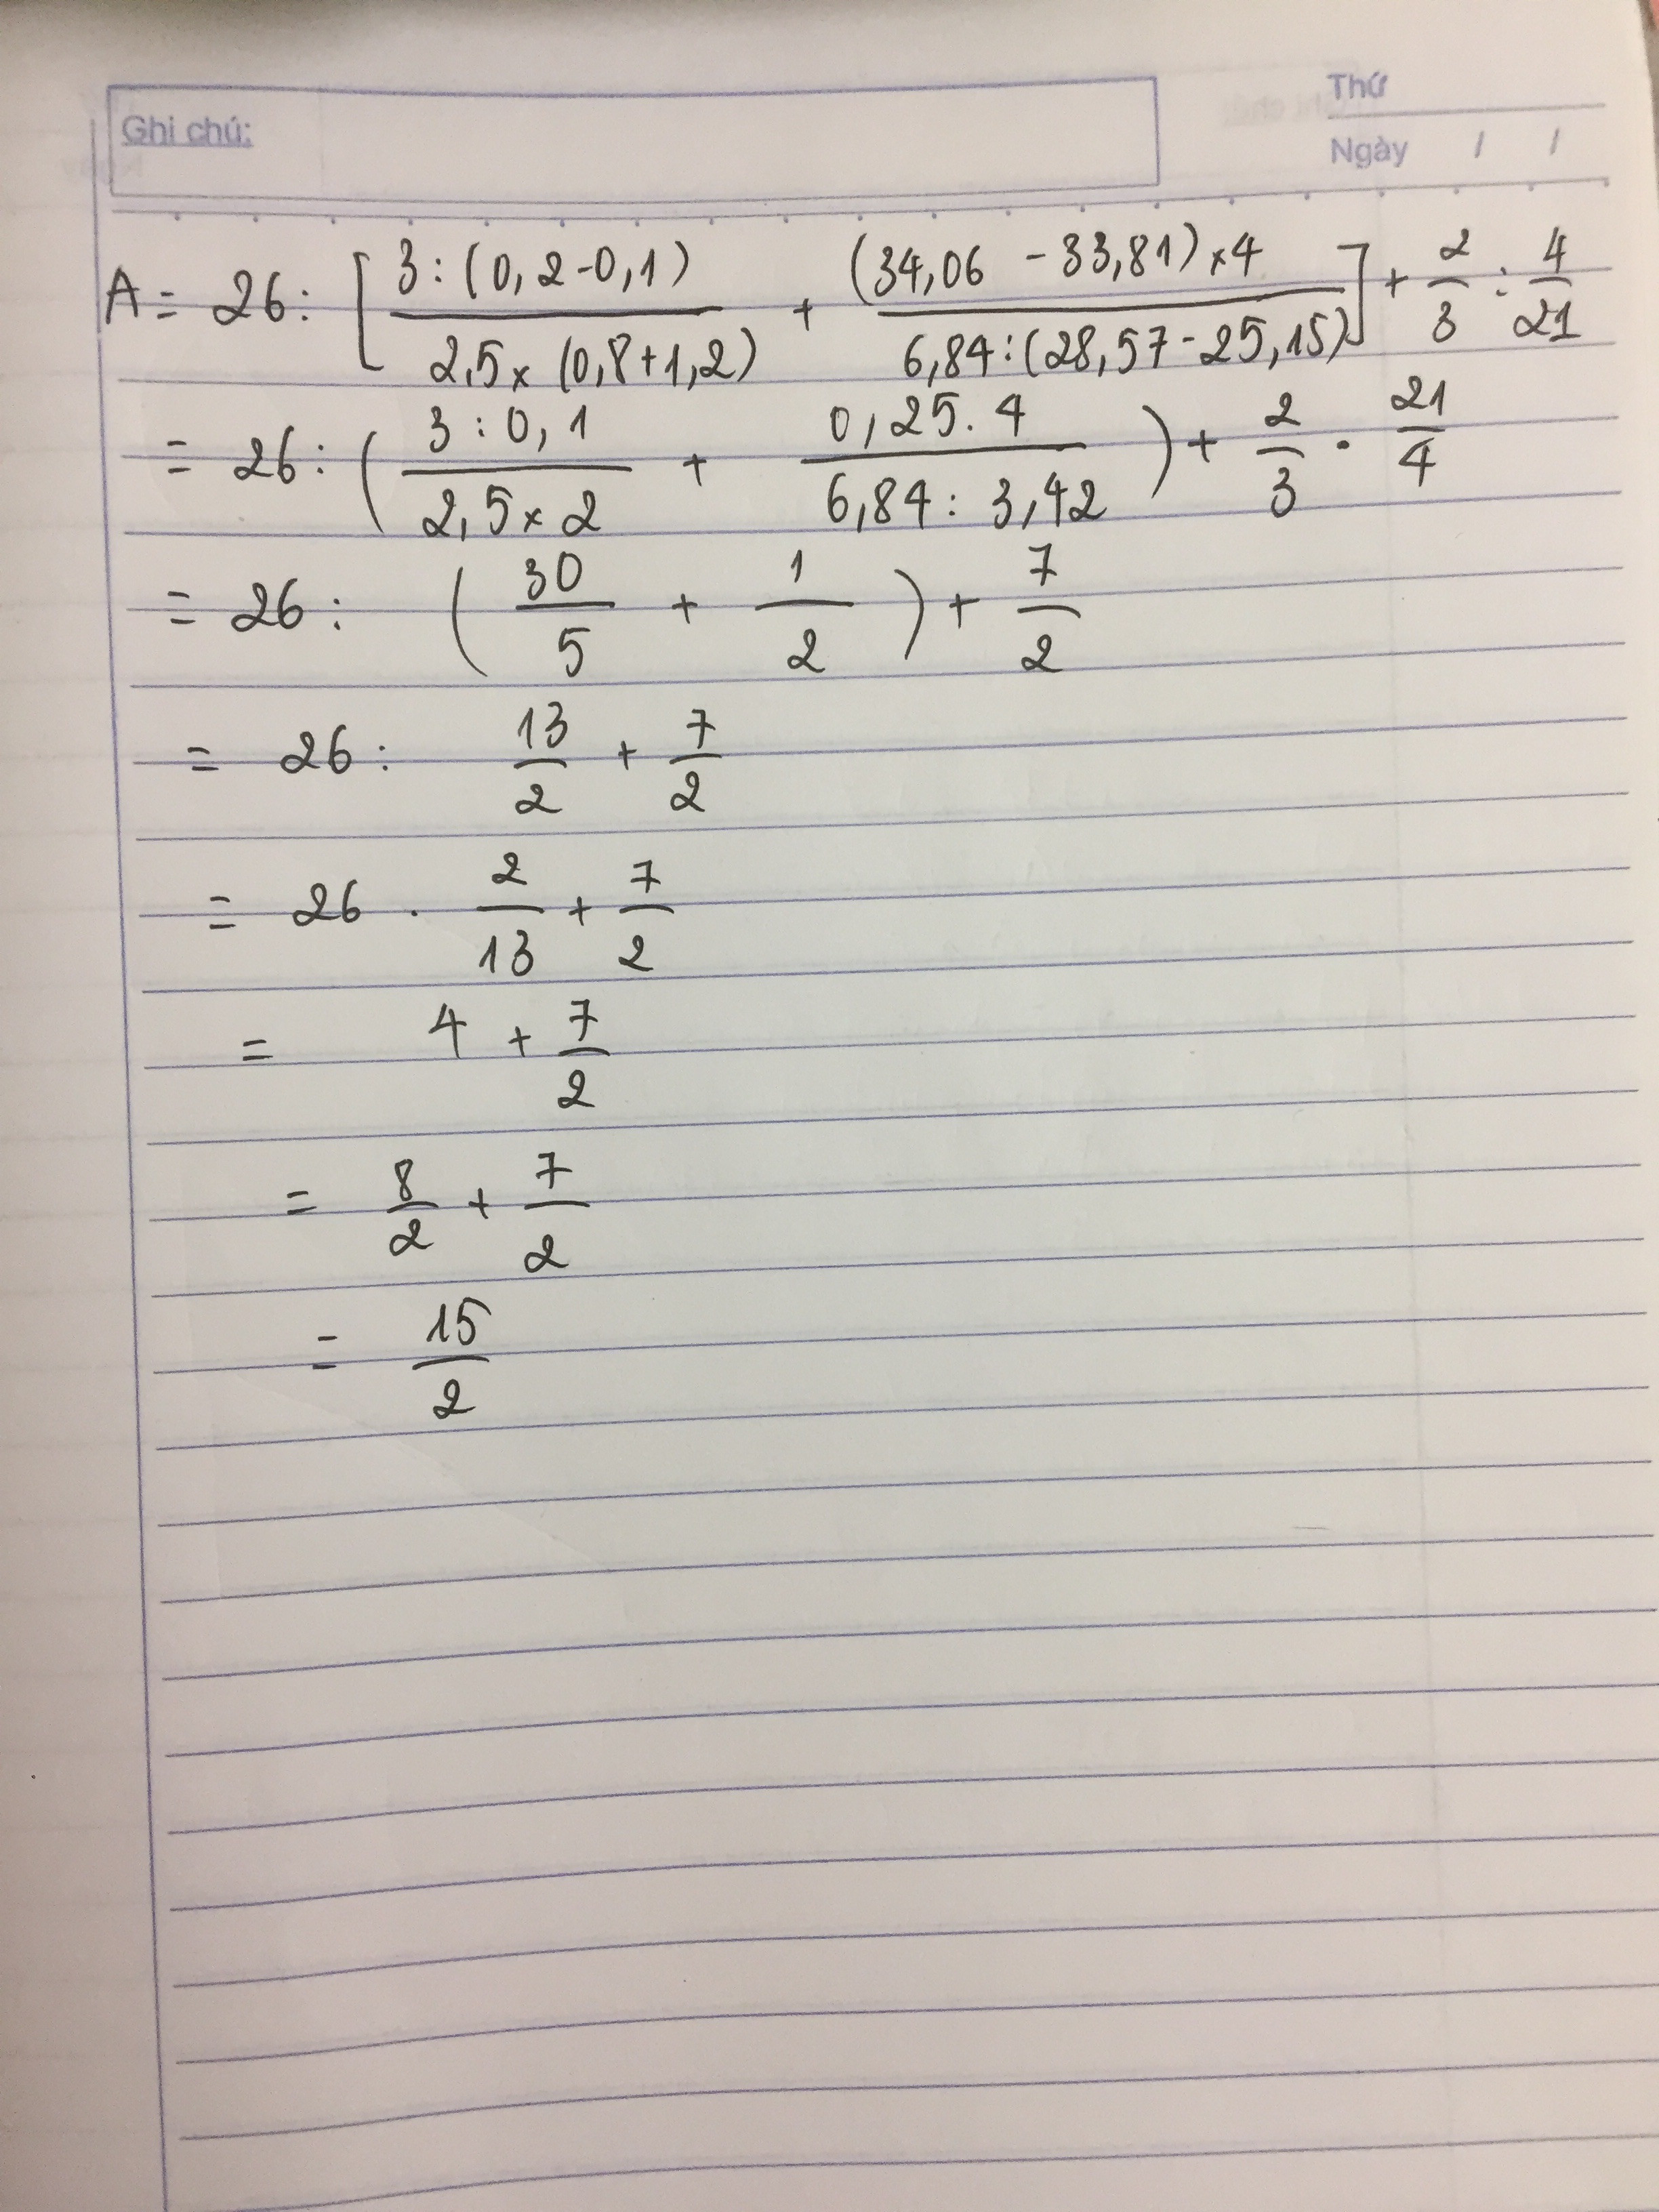 Ghi chú:
Thứ
Ngày / /
A = 26 : [ \frac{3 : (0,2 - 0,1)}{2,5 × (0,8 + 1,2)} + \frac{(34,06 - 33,81) × 4}{6,84 : (28,57 - 25,15)} ] + \frac{2}{3} : \frac{4}{21}
= 26 : ( \frac{3 : 0,1}{2,5 × 2} + \frac{0,25 . 4}{6,84 : 3,42} ) + \frac{2}{3} . \frac{21}{4}
= 26 : ( \frac{30}{5} + \frac{1}{2} ) + \frac{7}{2}
= 26 : \frac{13}{2} + \frac{7}{2}
= 26 . \frac{2}{13} + \frac{7}{2}
= 4 + \frac{7}{2}
= \frac{8}{2} + \frac{7}{2}
= \frac{15}{2}